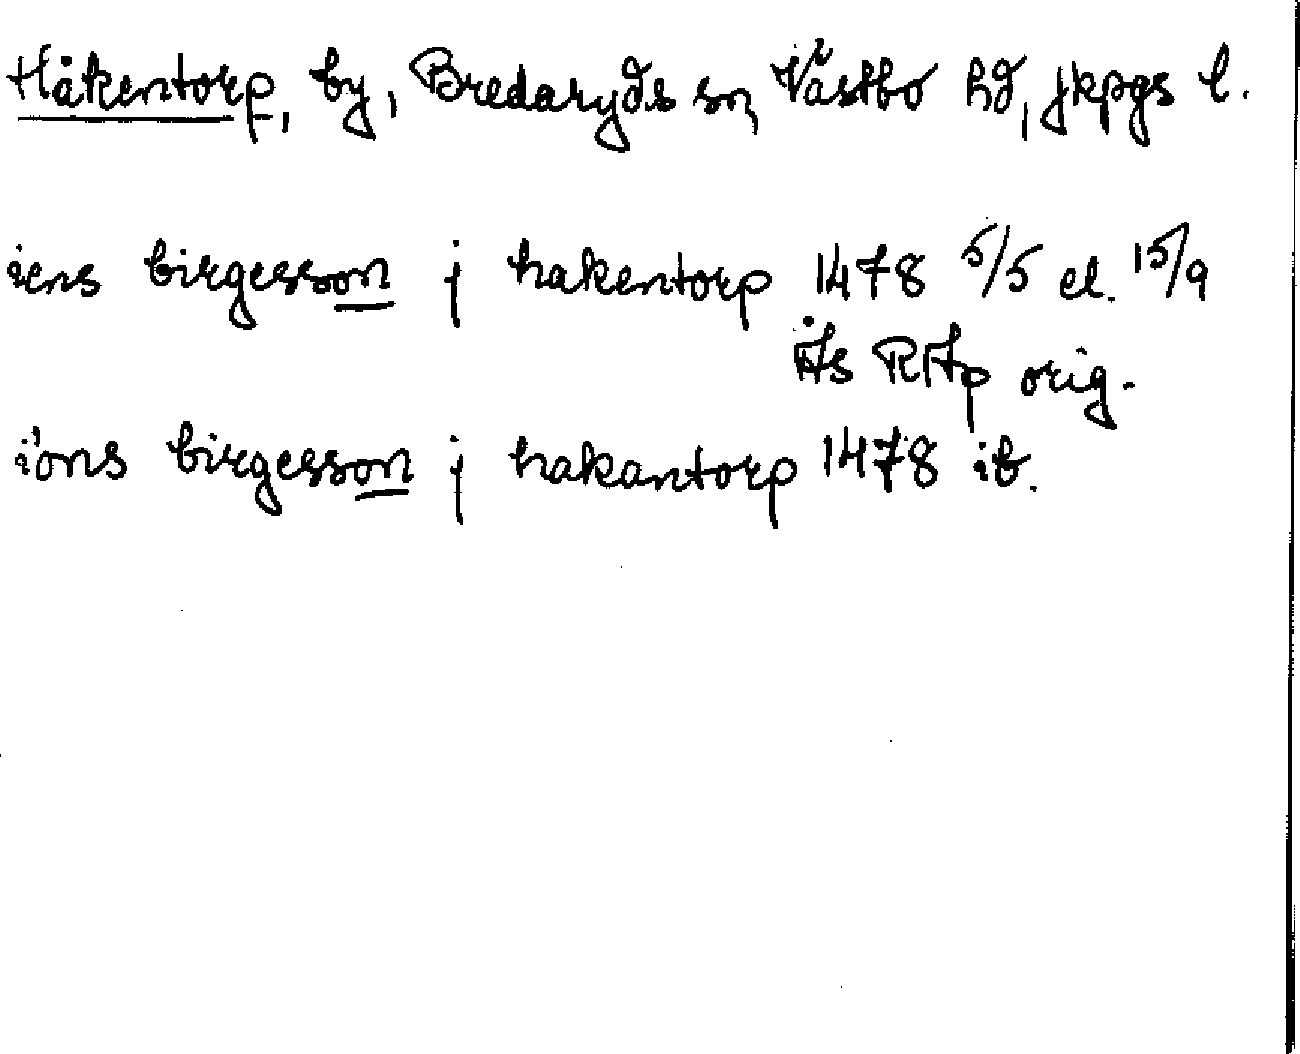 Håkentorp, by, Bredaryds sn, Västbo hd, Jkpgs l.
iens birgesson j hakentorp 1478 5/5 el. 15/9
Ås RAp orig.
iöns birgesson j hakantorp 1478 ib.